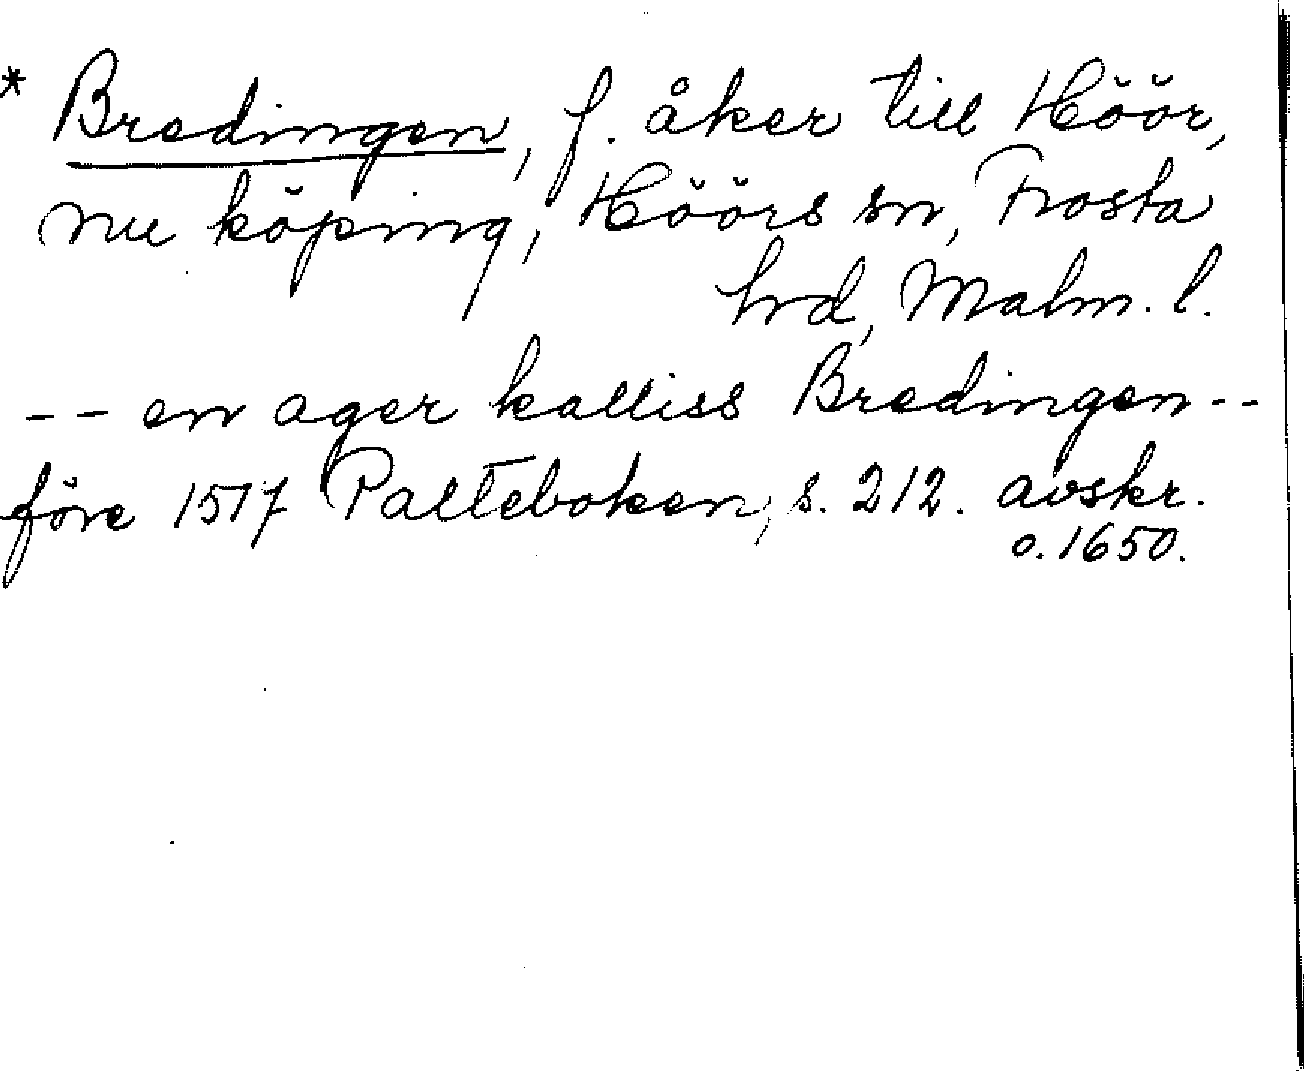 * Bredingen, f. åker till Höör,
nu köping, Höörs sn, Frosta
hrd, Malm. l.
-- en ager kalliss Bredingen --
före 1517 Palteboken, s. 212. avskr.
o. 1650.